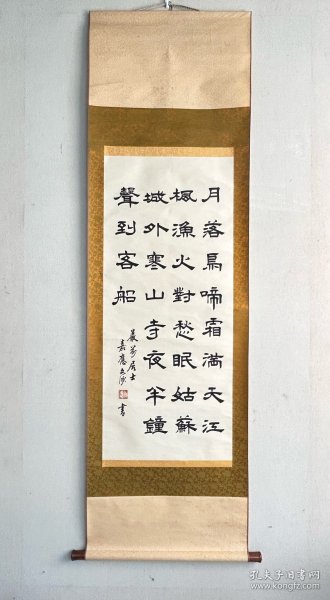 月落烏啼霜滿天江
楓漁火對愁眠姑蘇
城外寒山寺夜半鐘
聲到客船
居士
書
孔夫子旧书网
www.kongfz.com